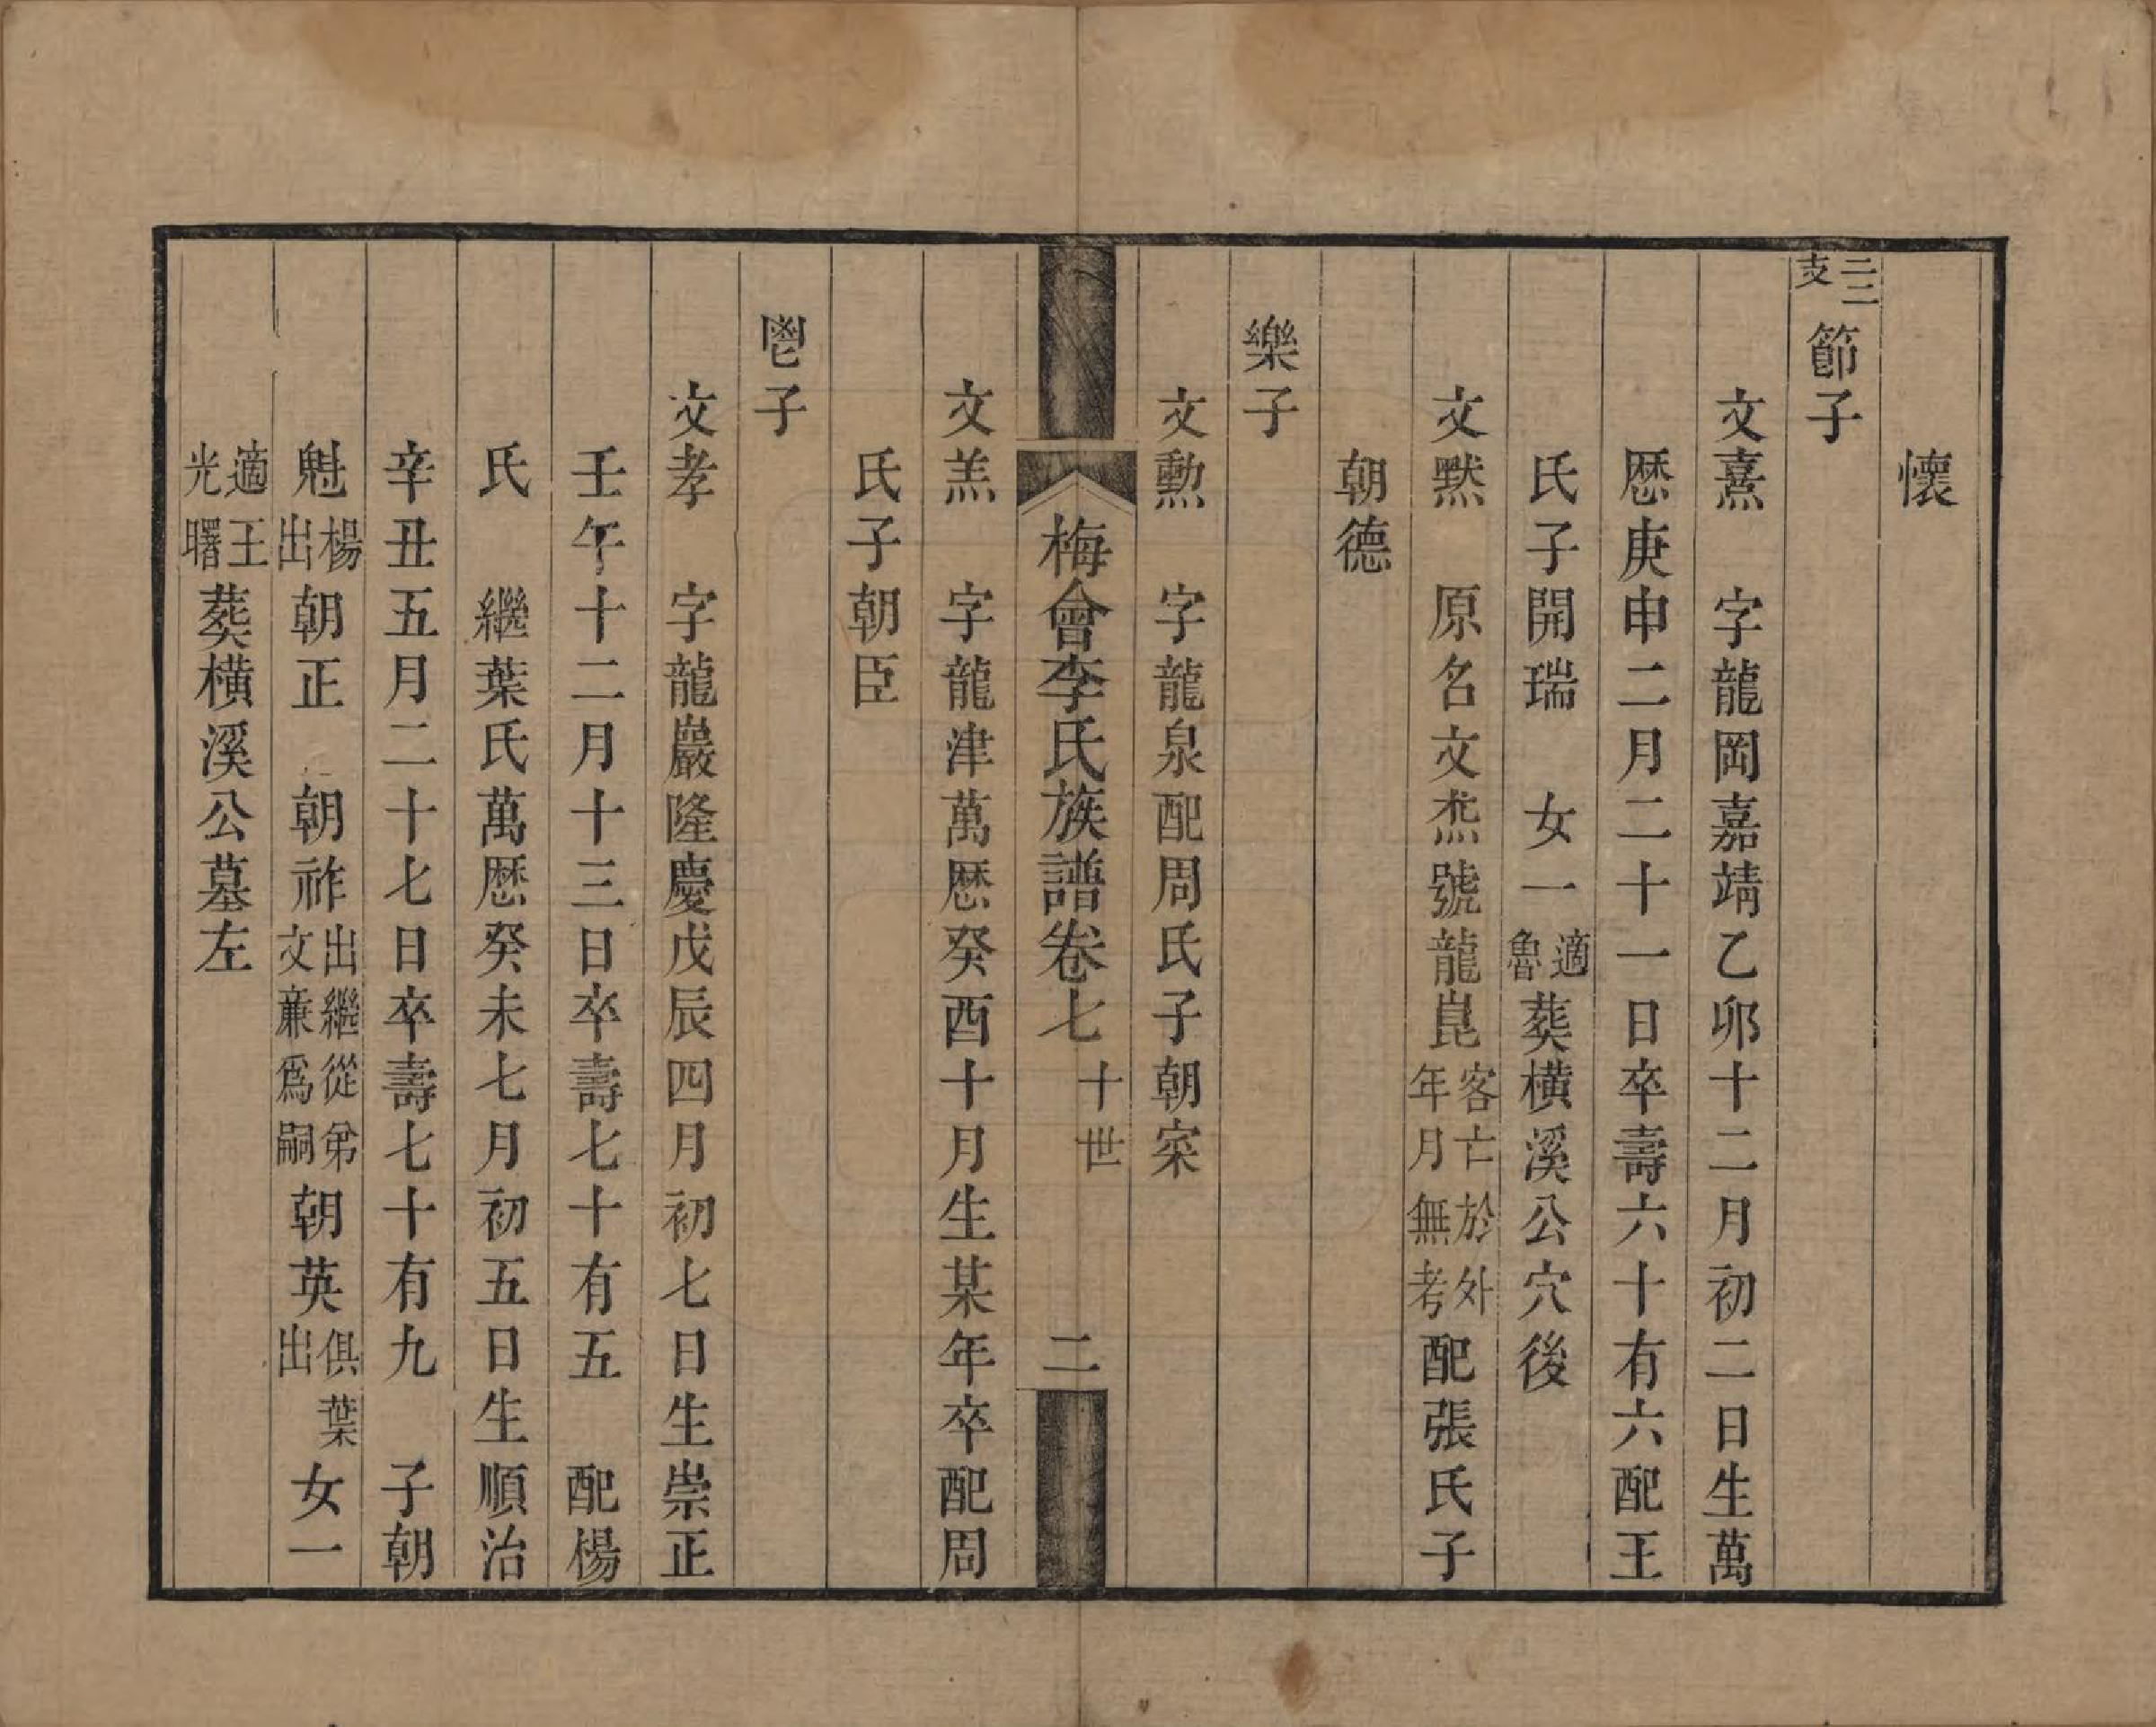 懷
二二支 節子
文熹 字龍岡嘉靖乙卯十二月初二日生萬
厯庚申二月二十一日卒壽六十有六配王
氏子開瑞 女一適魯葬橫溪公穴後
文默 原名文炁號龍崑客亡於外年月無考配張氏子
朝德
樂子
文勲 字龍泉配周氏子朝寀
梅會李氏族譜卷七 十世 二
文羔 字龍津萬厯癸酉十月生某年卒配周
氏子朝臣
鬯子
文孝 字龍巖隆慶戊辰四月初七日生崇正
壬午十二月十三日卒壽七十有五 配楊
氏 繼葉氏萬厯癸未七月初五日生順治
辛丑五月二十七日卒壽七十有九 子朝
魁楊出 朝正 朝祚出繼從弟文蔪爲嗣 朝英俱葉出 女一
適王光曙 葬橫溪公墓左